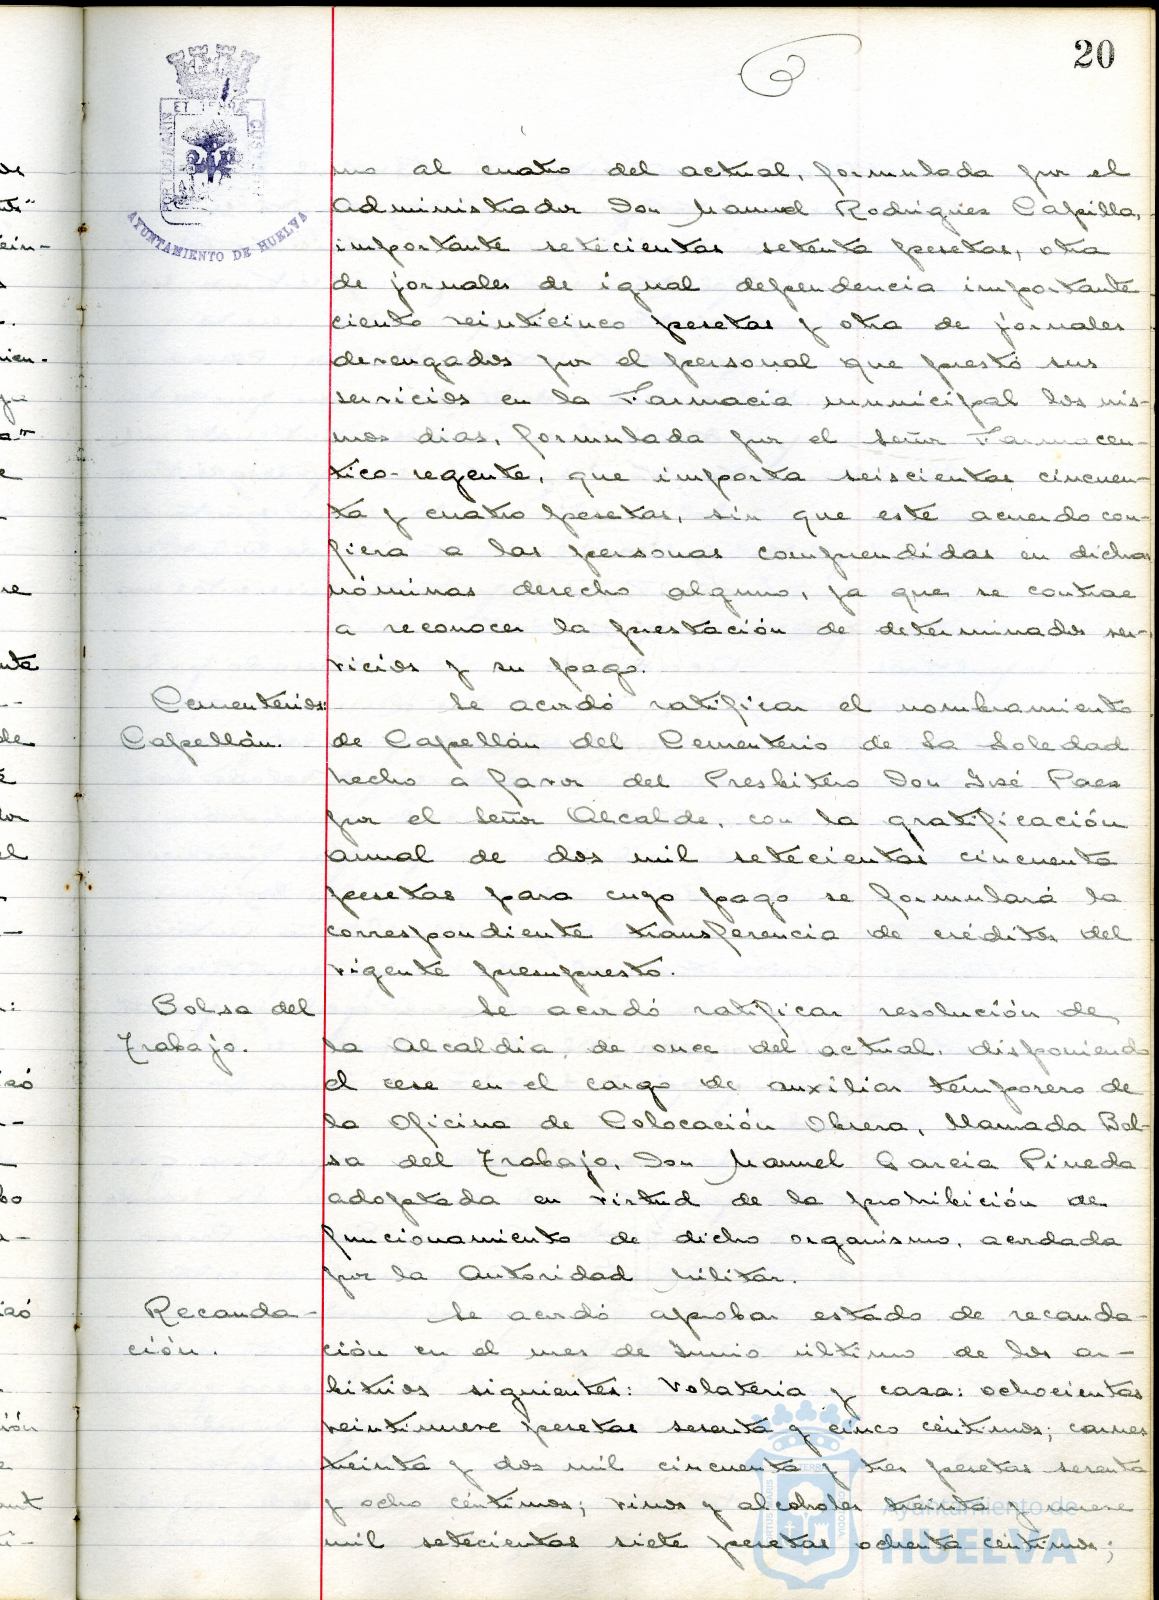 20
AYUNTAMIENTO DE HUELVA
mo al cuatro del actual, formulada por el
Administrador Don Manuel Rodriguez Capilla,
importante setecientas setenta pesetas, otra
de jornales de igual dependencia importante
ciento veinticinco pesetas y otra de jornales
devengados por el personal que prestó sus
servicios en la Farmacia municipal los mis-
mos dias, formulada por el señor Farmaceu-
tico-regente, que importa seiscientas cincuen-
ta y cuatro pesetas, sin que este acuerdo con-
fiera a las personas comprendidas en dichas
nóminas derecho alguno, ya que se contrae
a reconocer la prestación de determinados ser-
vicios y su pago.
Cementerios: Se acordó ratificar el nombramiento
Capellán. de Capellán del Cementerio de la Soledad
hecho a favor del Presbítero Don José Paez
por el Señor Alcalde, con la gratificación
anual de dos mil setecientas cincuenta
pesetas para cuyo pago se formulará la
correspondiente transferencia de créditos del
vigente presupuesto.
Bolsa del Se acordó ratificar resolución de
Trabajo. la Alcaldia, de once del actual, disponiendo
el cese en el cargo de auxiliar temporero de
la Oficina de Colocación Obrera, llamada Bol-
sa del Trabajo, Don Manuel Garcia Pineda
adoptada en virtud de la prohibición de
funcionamiento de dicho organismo, acordada
por la Autoridad Militar.
Recauda- Se acordó aprobar estado de recauda-
ción. ción en el mes de Junio último de los ar-
bitrios siguientes: Volateria y caza: ochocientas
veintinueve pesetas sesenta y cinco céntimos; carnes
treinta y dos mil cincuenta y tres pesetas sesenta
y ocho céntimos; vinos y alcoholes treinta y nueve
mil setecientas siete pesetas ochenta céntimos;
Ayuntamiento de
HUELVA